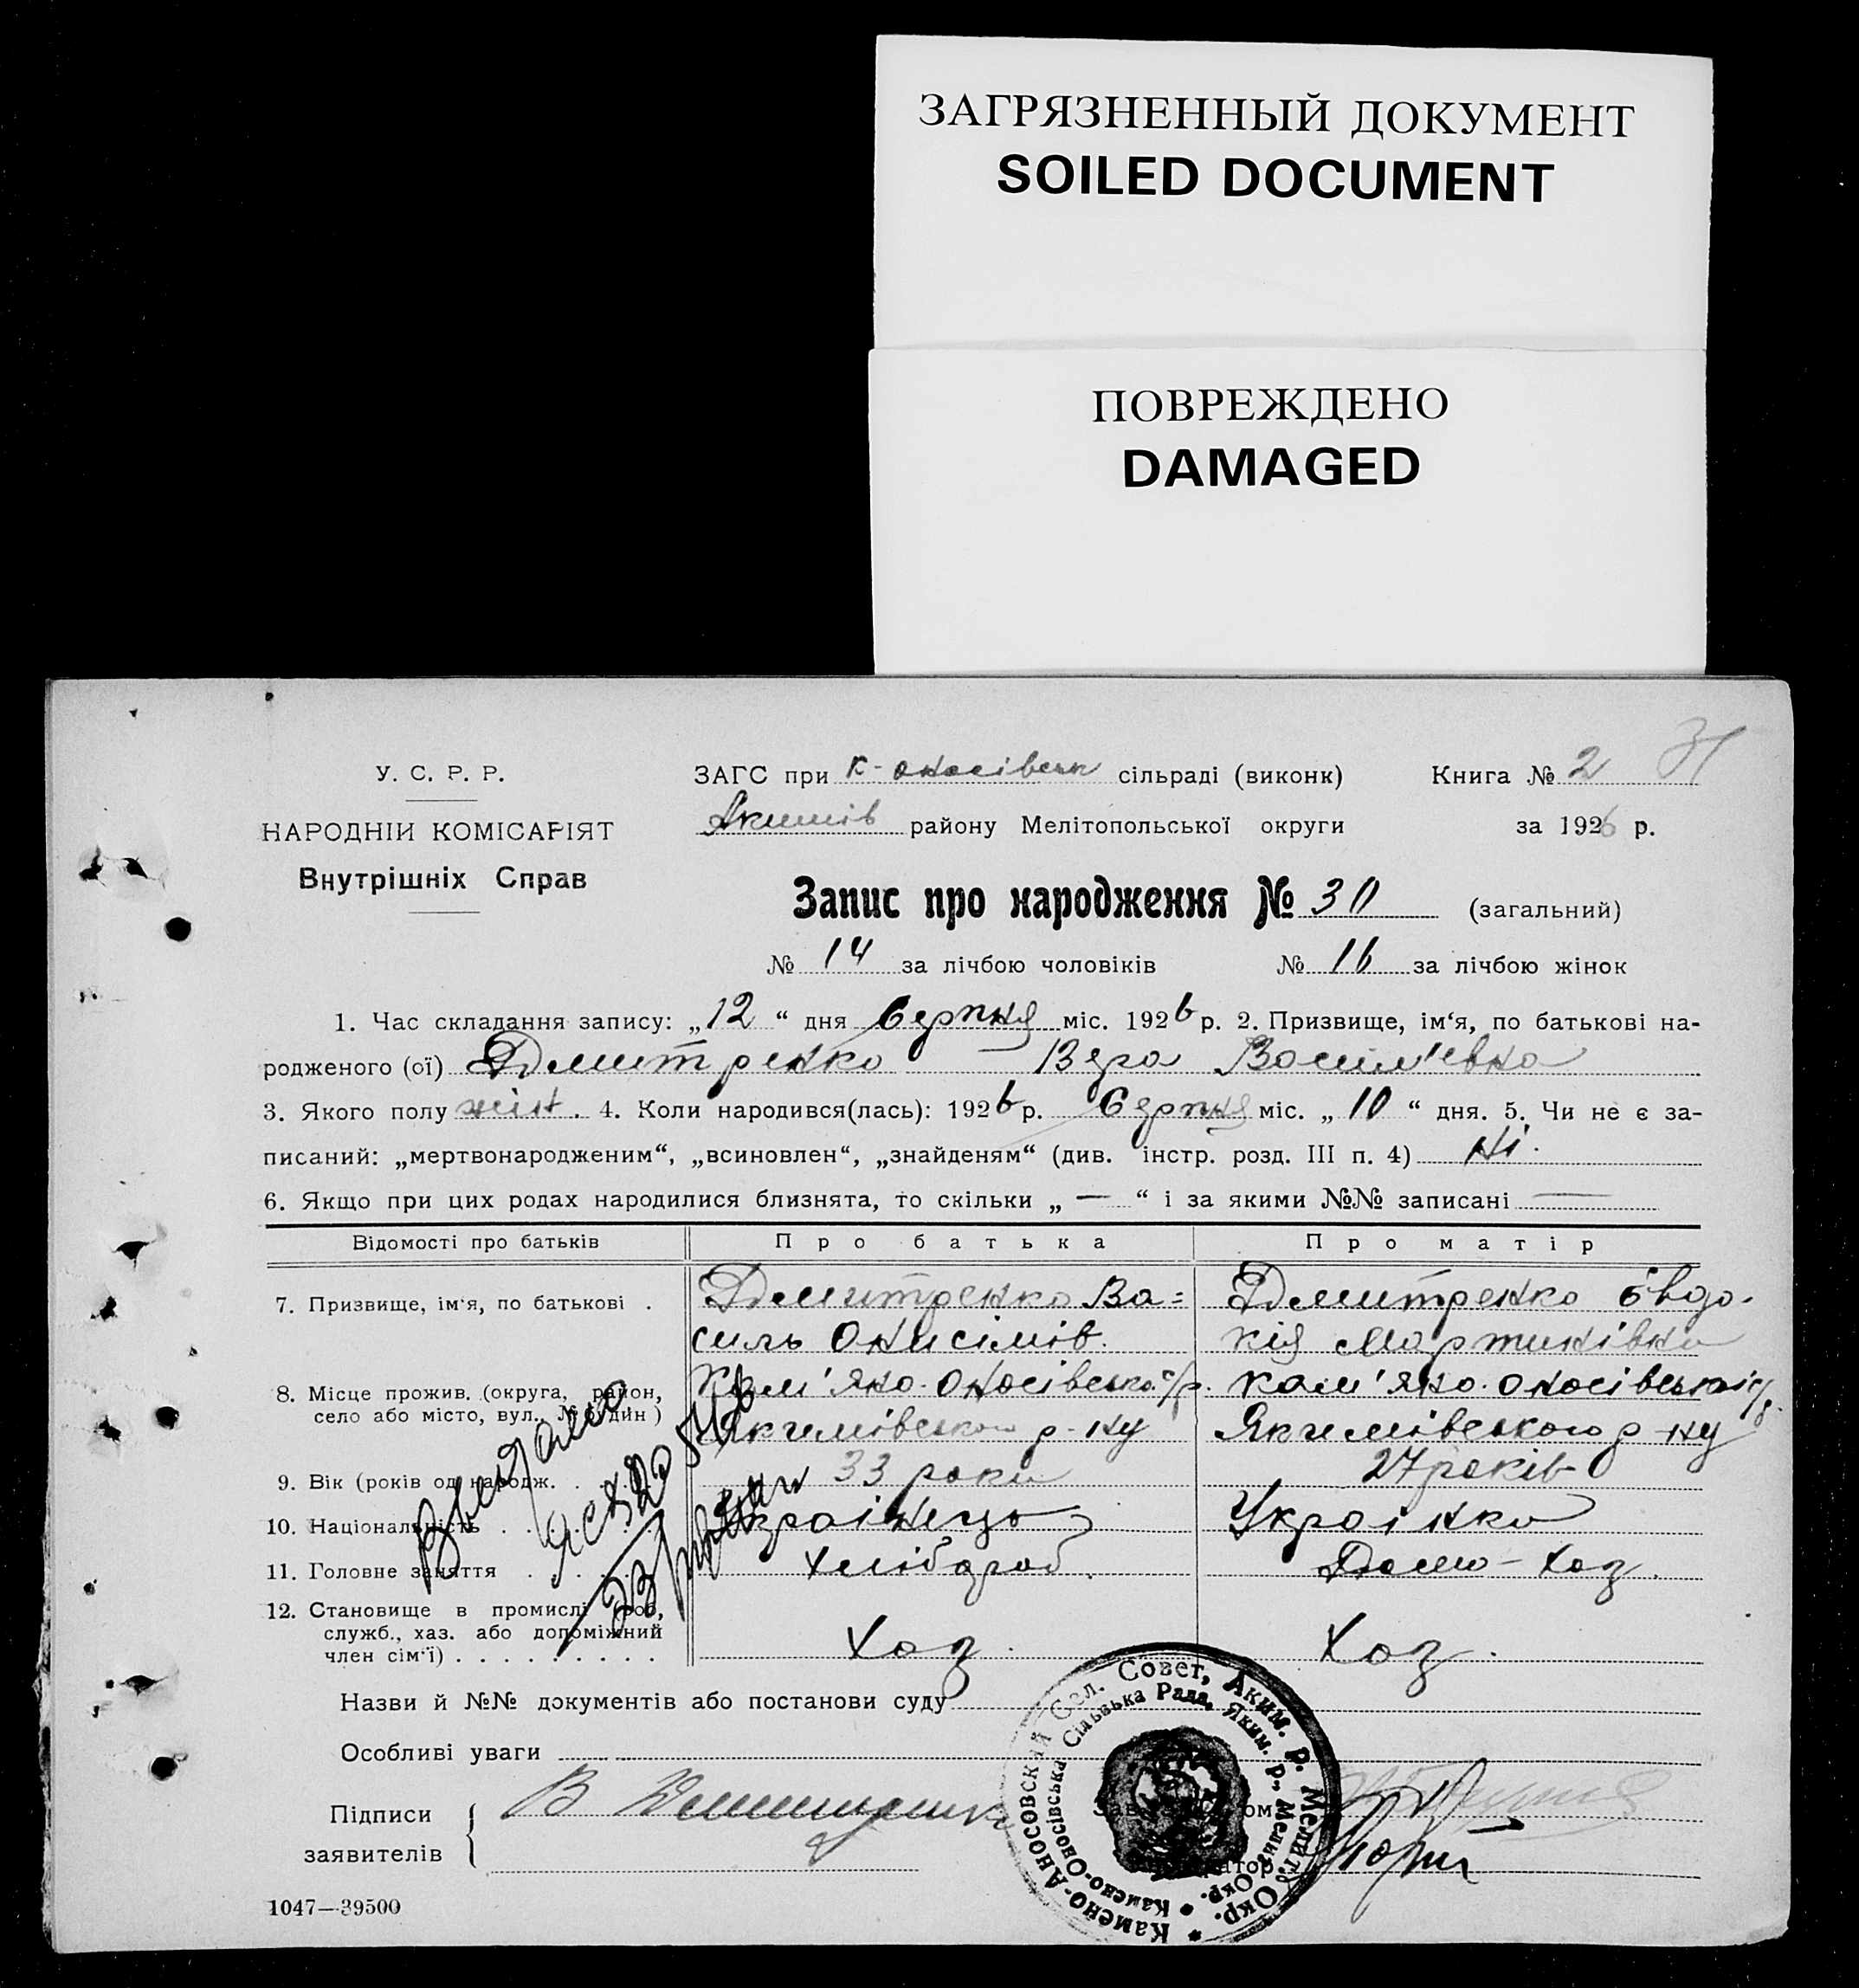 ЗАГРЯЗНЕННЫЙ ДОКУМЕНТ
SOILED DOCUMENT
ПОВРЕЖДЕНО
DAMAGED
31
У. С. Р. Р.
НАРОДНІЙ КОМІСАРІЯТ
Внутрішніх Справ
ЗАГС при К-оносівськ сільраді (виконк) Книга № 2
Акимів району Мелітопольської округи за 1926 р.
Запис про народження № 30 (загальний)
№ 14 за лічбою чоловіків № 16 за лічбою жінок
1. Час складання запису: „12“ дня Серпня міс. 1926 р. 2. Призвище, ім‘я, по батькові на-
родженого (ої) Дмитренко Вера Васил'евна
3. Якого полу жін. 4. Коли народився(лась): 1926 р. Серпня міс. „10“ дня. 5. Чи не є за-
писаний: „мертвонародженим“, „всиновлен“, „знайденям“ (див. інстр. розд. III п. 4) Ні.
6. Якщо при цих родах народилися близнята, то скільки „—“ і за якими №№ записані —
Відомості про батьків Про батька Про матір
7. Призвище, ім‘я, по батькові . Дмитренко Ва= Дмитренко Євдо-
силь Онисімів. кія Мартинівна
8. Місце прожив. (округа, район, Кам'яно-Оносівська с/р. Кам'яно-Оносівська с/р.
село або місто, вул., № будин) Якимівського р-ну Якимівського р-ну
9. Вік (років од народж. 33 роки 27 років
10. Національність Українець Українка
11. Головне заняття Хлібороб. Домо-Хаз.
12. Становище в промислі (роб,
служб., хаз. або допоміжний Хаз. Хаз.
член сім‘ї)
Выдано
Назви й №№ документів або постанови суду
Особливі уваги
Підписи В Дмитренко
заявителів
Камено-Аносовский Сел. Совет, Аким. р. Мелит. Окр.
Камено-Оносівська Сільська Рада, Яким. р., Меліт. Окр.
1047—39500